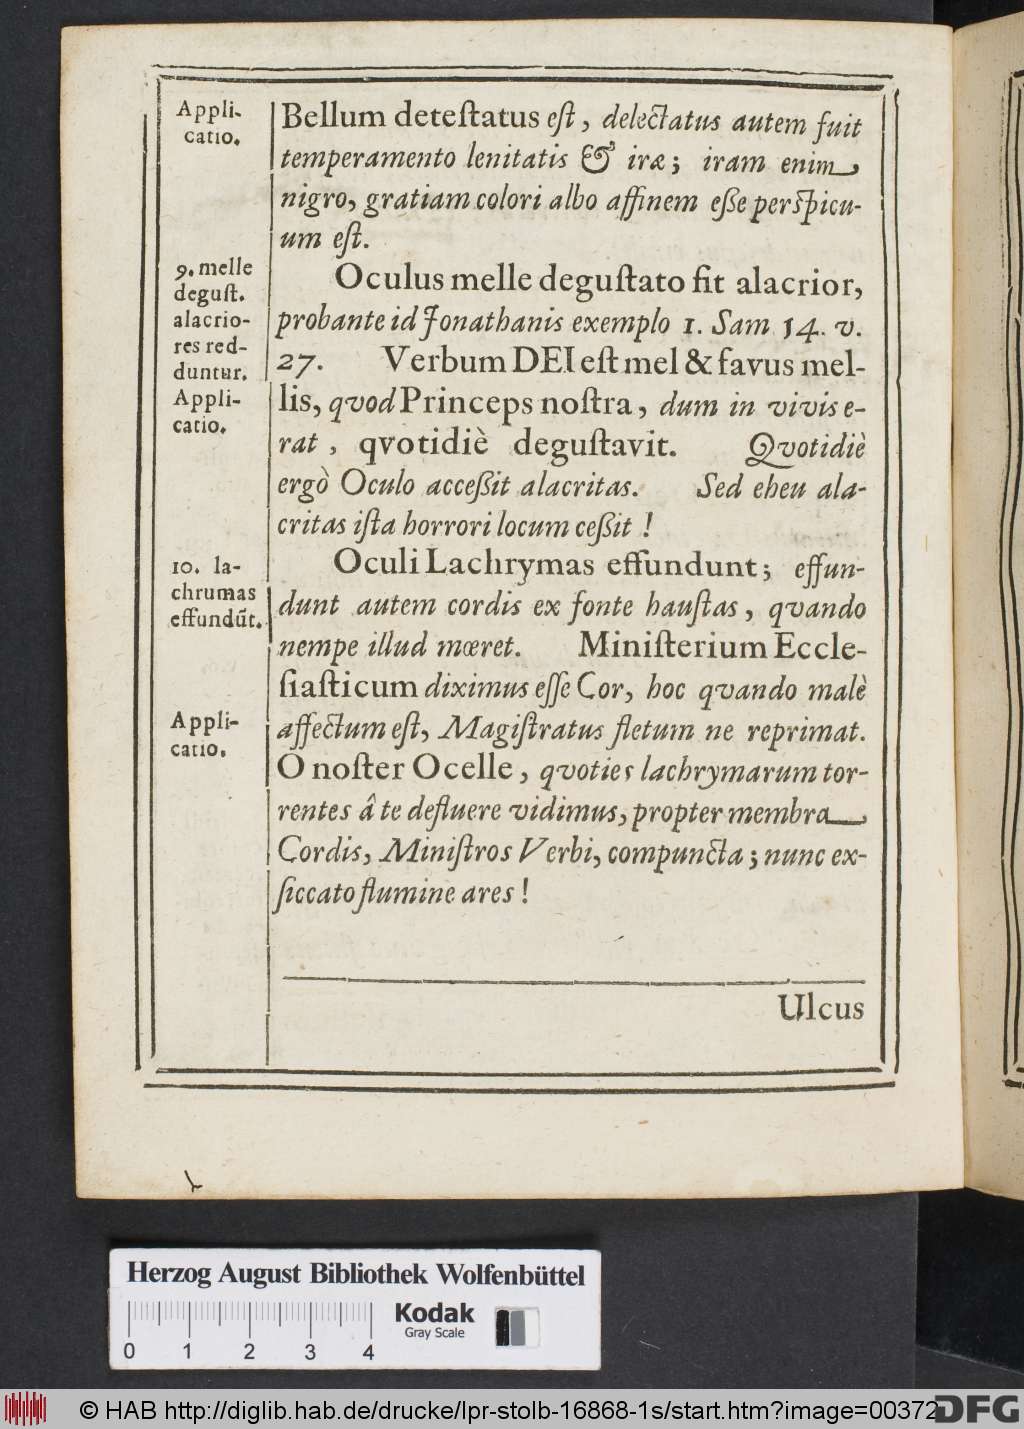 Appli-
catio.
Bellum deteſtatus eſt, delectatus autem fuit
temperamento lenitatis & iræ; iram enim
nigro, gratiam colori albo affinem eſſe perſpicu-
um eſt.
9. melle
deguſt.
alacrio-
res red-
duntur.
Appli-
catio.
Oculus melle deguſtato fit alacrior,
probante id Jonathanis exemplo 1. Sam 14. v.
27. Verbum DEI eſt mel & favus mel-
lis, qvod Princeps noſtra, dum in vivis e-
rat, qvotidiè deguſtavit. Qvotidiè
ergò Oculo acceßit alacritas. Sed eheu ala-
critas iſta horrori locum ceßit!
10. la-
chrumas
effundūt.
Appli-
catio.
Oculi Lachrymas effundunt; effun-
dunt autem cordis ex fonte hauſtas, qvando
nempe illud mœret. Miniſterium Eccle-
ſiaſticum diximus eſſe Cor, hoc qvando malè
affectum eſt, Magiſtratus fletum ne reprimat.
O noſter Ocelle, qvoties lachrymarum tor-
rentes â te defluere vidimus, propter membra
Cordis, Miniſtros Verbi, compuncta; nunc ex-
ſiccato flumine ares!
Ulcus
Herzog August Bibliothek Wolfenbüttel
Kodak
Gray Scale
0 1 2 3 4
© HAB http://diglib.hab.de/drucke/lpr-stolb-16868-1s/start.htm?image=00372
DFG